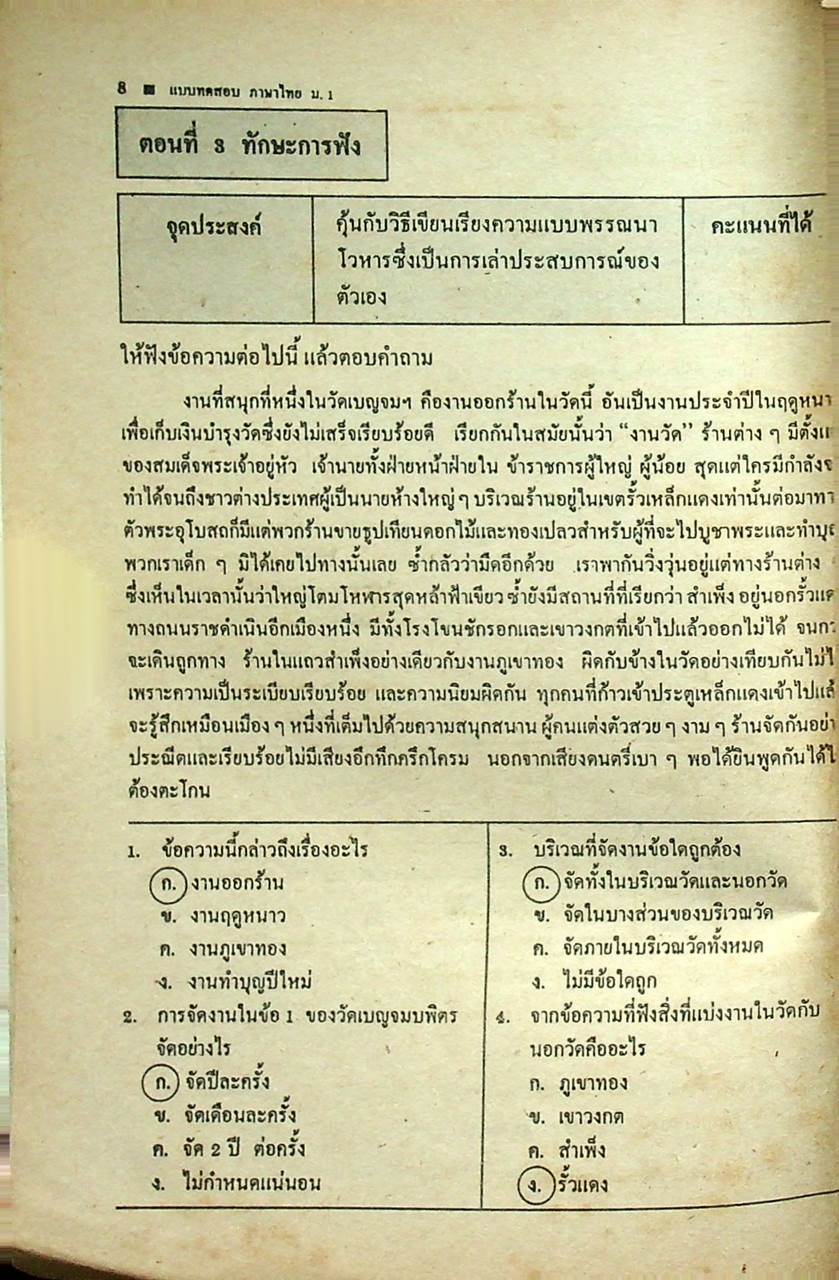 8 ■ แบบทดสอบ ภาษาไทย ม.1
ตอนที่ 3 ทักษะการฟัง
จุดประสงค์
คุ้นกับวิธีเขียนเรียงความแบบพรรณนา
โวหารซึ่งเป็นการเล่าประสบการณ์ของ
ตัวเอง
คะแนนที่ได้
ให้ฟังข้อความต่อไปนี้ แล้วตอบคำถาม
งานที่สนุกที่หนึ่งในวัดเบญจมฯ คืองานออกร้านในวัดนี้ อันเป็นงานประจำปีในฤดูหนา
เพื่อเก็บเงินบำรุงวัดซึ่งยังไม่เสร็จเรียบร้อยดี เรียกกันในสมัยนั้นว่า “งานวัด” ร้านต่าง ๆ มีตั้งแ
ของสมเด็จพระเจ้าอยู่หัว เจ้านายทั้งฝ่ายหน้าฝ่ายใน ข้าราชการผู้ใหญ่ ผู้น้อย สุดแต่ใครมีกำลังจ
ทำได้จนถึงชาวต่างประเทศผู้เป็นนายห้างใหญ่ ๆ บริเวณร้านอยู่ในเขตรั้วเหล็กแดงเท่านั้นต่อมาทา
ตัวพระอุโบสถก็มีแต่พวกร้านขายธูปเทียนดอกไม้และทองเปลวสำหรับผู้ที่จะไปบูชาพระและทำบุ
พวกเราเด็ก ๆ มิได้เคยไปทางนั้นเลย ซ้ำกลัวว่ามืดอีกด้วย เราพากันวิ่งวุ่นอยู่แต่ทางร้านต่าง
ซึ่งเห็นในเวลานั้นว่าใหญ่โตมโหฬารสุดหล้าฟ้าเขียว ซ้ำยังมีสถานที่ที่เรียกว่า สำเพ็ง อยู่นอกรั้วแด
ทางถนนราชดำเนินอีกเมืองหนึ่ง มีทั้งโรงโขนชักรอกและเขาวงกตที่เข้าไปแล้วออกไม่ได้ จนกว
จะเดินถูกทาง ร้านในแถวสำเพ็งอย่างเดียวกับงานภูเขาทอง ผิดกับข้างในวัดอย่างเทียบกันไม่ไ
เพราะความเป็นระเบียบเรียบร้อย และความนิยมผิดกัน ทุกคนที่ก้าวเข้าประตูเหล็กแดงเข้าไปแล้
จะรู้สึกเหมือนเมือง ๆ หนึ่งที่เต็มไปด้วยความสนุกสนาน ผู้คนแต่งตัวสวย ๆ งาม ๆ ร้านจัดกันอย่า
ประณีตและเรียบร้อยไม่มีเสียงอึกทึกครึกโครม นอกจากเสียงดนตรีเบา ๆ พอได้ยินพูดกันได้ไ
ต้องตะโกน
1. ข้อความนี้กล่าวถึงเรื่องอะไร
ก. งานออกร้าน
ข. งานฤดูหนาว
ค. งานภูเขาทอง
ง. งานทำบุญปีใหม่
2. การจัดงานในข้อ 1 ของวัดเบญจมบพิตร
จัดอย่างไร
ก. จัดปีละครั้ง
ข. จัดเดือนละครั้ง
ค. จัด 2 ปี ต่อครั้ง
ง. ไม่กำหนดแน่นอน
3. บริเวณที่จัดงานข้อใดถูกต้อง
ก. จัดทั้งในบริเวณวัดและนอกวัด
ข. จัดในบางส่วนของบริเวณวัด
ค. จัดภายในบริเวณวัดทั้งหมด
ง. ไม่มีข้อใดถูก
4. จากข้อความที่ฟังสิ่งที่แบ่งงานในวัดกับ
นอกวัดคืออะไร
ก. ภูเขาทอง
ข. เขาวงกต
ค. สำเพ็ง
ง. รั้วแดง